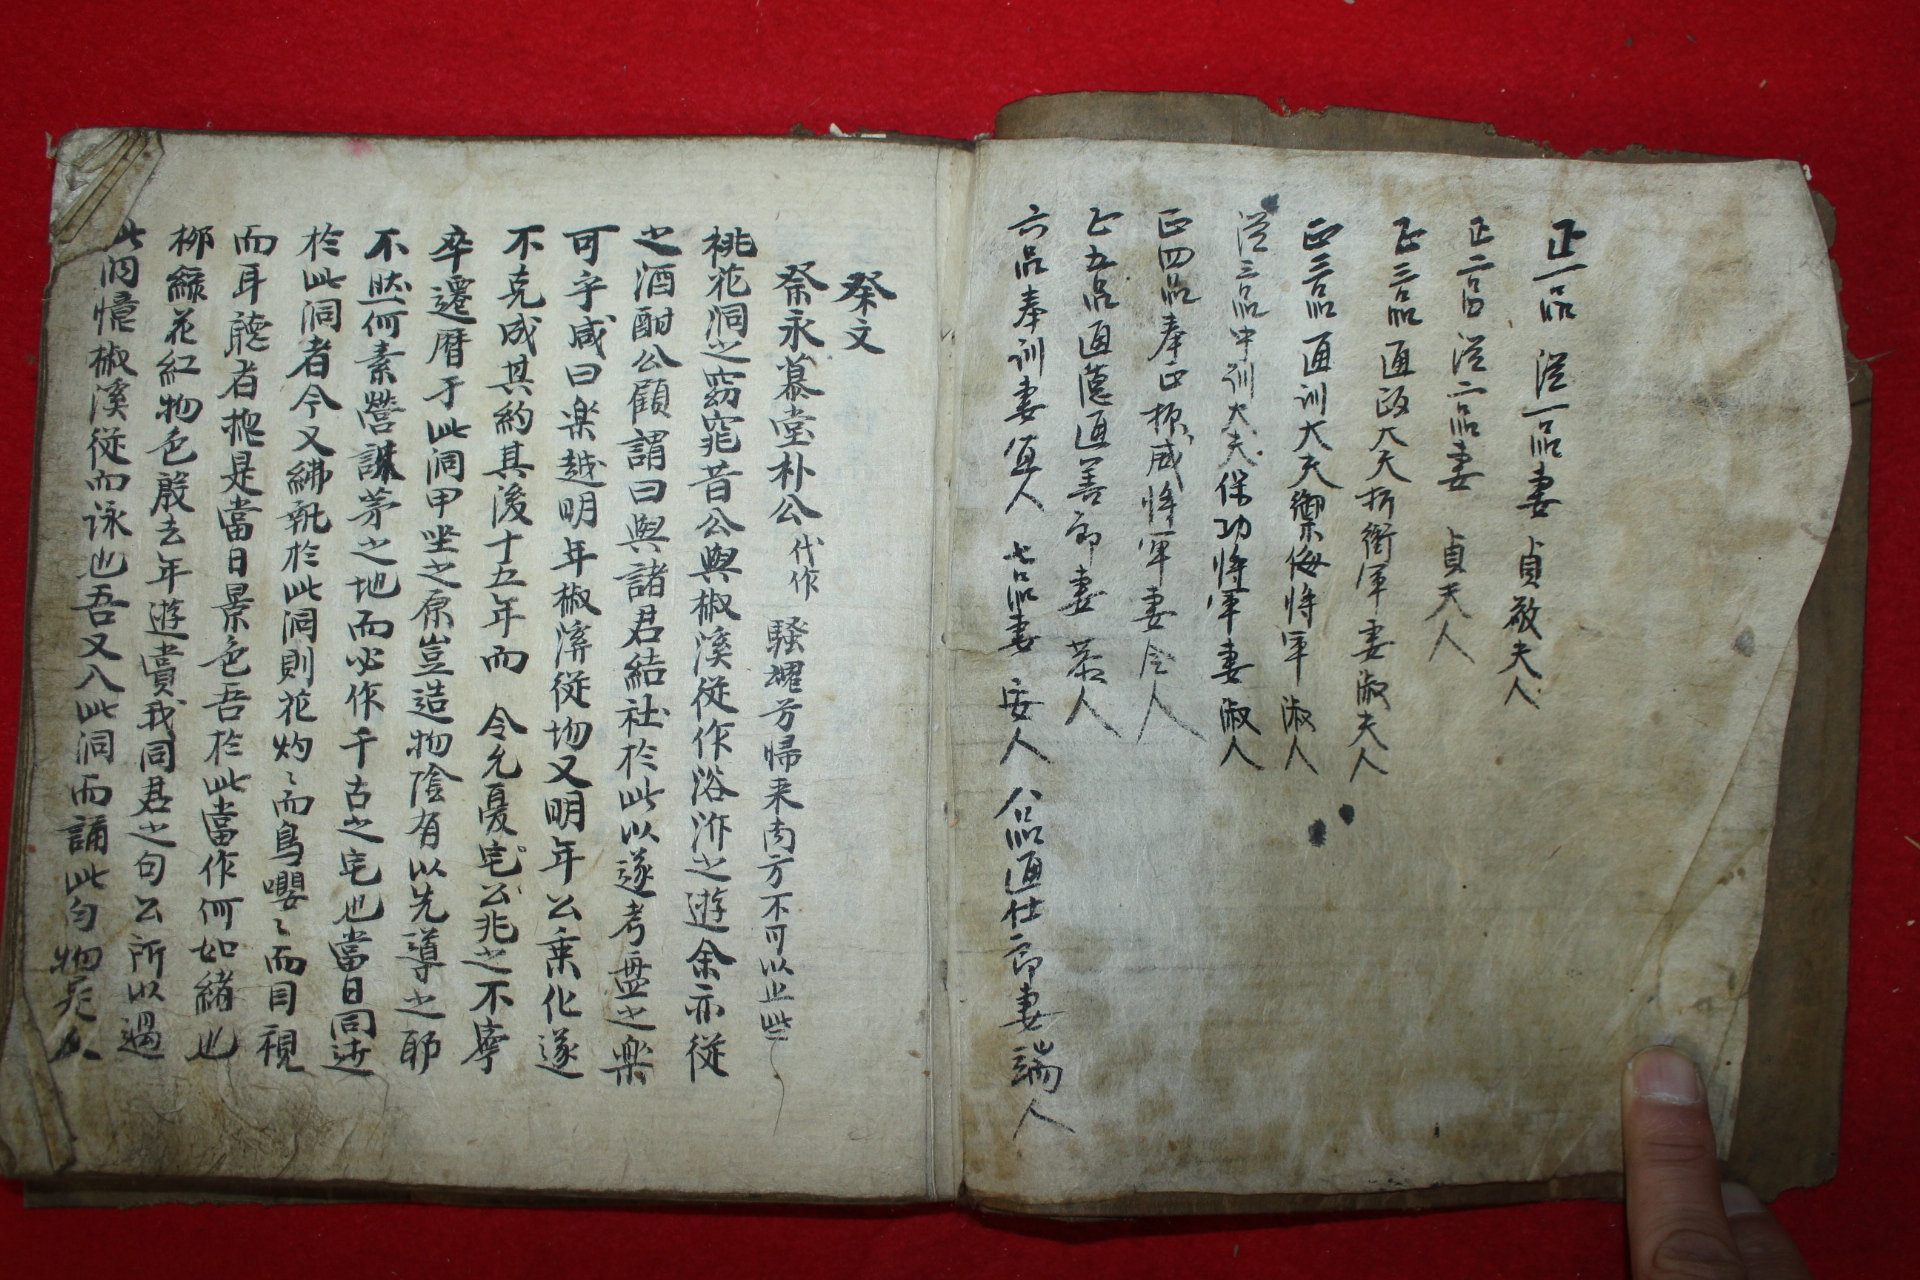 正一品 從一品妻 貞敬夫人
正二品 從二品妻 貞夫人
正三品 通政大夫折衝軍妻淑夫人
正三品 通訓大夫禦侮將軍 淑人
從三品中訓大夫保功將軍妻淑人
正四品奉正振威將軍妻令人
正五品通德通善郎妻 恭人
六品奉訓妻宜人 七品妻 安人 八品通仕郎妻端人
祭文
祭永慕堂朴公代作 騷擾方歸來南方不可以止些
桃花洞之窈窕昔公與椒溪從作浴沂之遊余亦從
之酒酣公顧謂曰與諸君結社於此以遂考盤之樂
可乎咸曰楽越明年椒溪從物又明年公乘化遂
不克成其約其後十五年而 令允憂宅公兆之不寧
卒遷曆于此洞甲坐之原豈造物陰有以先導之耶
不然何素營謀茅之地而必作千古之宅也當日同遊
於此洞者今又紼執於此洞則花灼ミ而鳥嚶ミ而目視
而耳聽者摠是當日景色吾於此當作何如緖也
柳綠花紅物色殷去年遊賞我同君之句公所以過
此洞憶椒溪從而詠也吾又入此洞而誦此句物是人